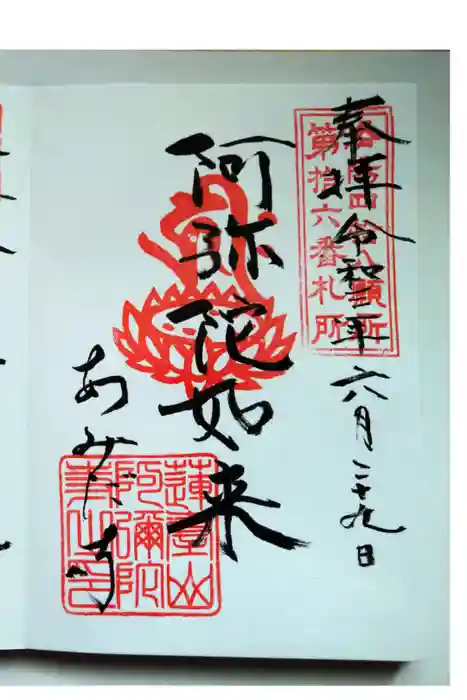 奉拝 令和二年 六月二十九日
四拾八願所
第拾六番札所
阿弥陀如来
あみだ寺
蓮臺山
阿彌陀
寺之印